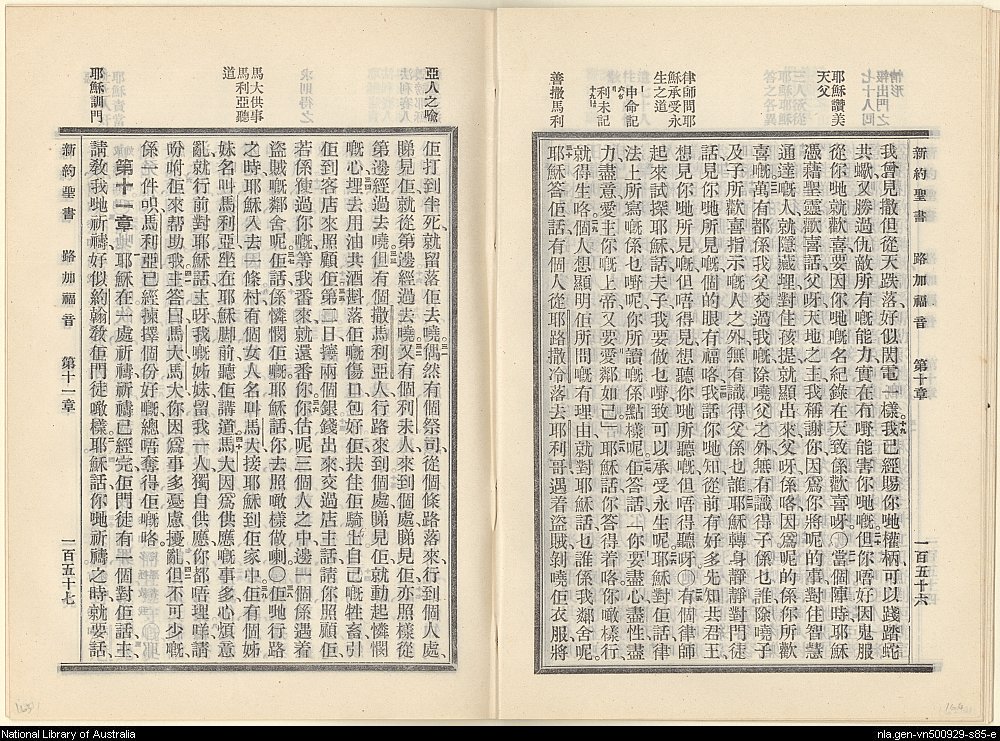 新約聖書 路加福音 第十章 一百五十六
我曾見撒但從天跌落好似閃電一樣我已經賜你哋權柄可以踐踏蛇
共蠍又勝過仇敵所有嘅能力實在冇嘢能害你哋嘅但你唔好因鬼服
從你哋就歡喜要因你哋嘅名紀錄在天致係歡喜呀當個陣時耶穌
憑藉聖靈歡喜話父呀天地之主我稱謝你因爲你將呢的事對住智慧
通達嘅人就隱藏埋對住孩提就顯出來父呀係咯因爲呢的係你所歡
喜嘅萬有都係我父交過我嘅除嘵父之外無有識得子係乜誰除嘵子
及子所歡喜指示嘅人之外無有識得父係乜誰耶穌轉身靜靜對門徒
話見你哋所見嘅個的眼有福咯我話你哋知從前有好多先知共君王
想見你哋所見嘅但唔得見想聽你哋所聽嘅但唔得聽呀有個律師
起來試探耶穌話夫子我要做乜嘢致可以承受永生呢耶穌對佢話律
法上所寫嘅係乜嘢呢你所讀嘅係點樣呢佢答話你要盡心盡性盡
力盡意愛主你嘅上帝又要愛鄰如己耶穌話你答得着咯你噉樣行
就得生咯個人想顯明佢所問嘅有理由就對耶穌話乜誰係我鄰舍呢
耶穌答佢話有個人從耶路撒冷落去耶利哥遇着盜賊剝嘵佢衣服將
情形
報出門之
七十人回
耶穌讚美
天父
律師問耶
穌承受永
生之道
申命記
利未記
善撒馬利
新約聖書 路加福音 第十一章 一百五十七
佢打到半死就留落佢去嘵偶然有個祭司從個條路落來行到個人處
睇見佢就從第邊經過去嘵又有個利未人來到個處睇見佢亦照樣從
第邊經過去嘵但有個撒馬利亞人行路來到個處睇見佢就動起憐憫
嘅心埋去用油共酒斟落佢嘅傷口包好佢扶住佢騎上自己嘅牲畜引
佢到客店來照顧佢第二日攞兩個銀錢出來交過店主話請你照顧佢
若係使過你嘅等我番來就還番你你估呢三個人之中邊一個係遇着
盜賊嘅鄰舍呢佢話係憐憫佢嘅耶穌話你去照噉樣做喇佢哋行路
之時耶穌入去一條村有個女人名叫馬大接耶穌到佢家中佢有個姊
妹名叫馬利亞坐在耶穌脚前聽佢講道馬大因爲供應嘅事多心煩意
亂就行前對耶穌話主呀我嘅姊妹留我一人獨自供應你都唔理咩請
吩咐佢來幫助我主答曰馬大馬大你因爲事多憂慮擾亂但不可少嘅
係一件呮馬利亞已經揀擇個份好嘅總唔奪得佢嘅咯
第十一章 耶穌在一處祈禱祈禱已經完佢門徒有一個對佢話主
請教我哋祈禱好似約翰教佢門徒噉樣耶穌話你哋祈禱之時就要話
亞人之喻
馬大供事
馬利亞聽
道
耶穌訓門
National Library of Australia
nla.gen-vn500929-s85-e